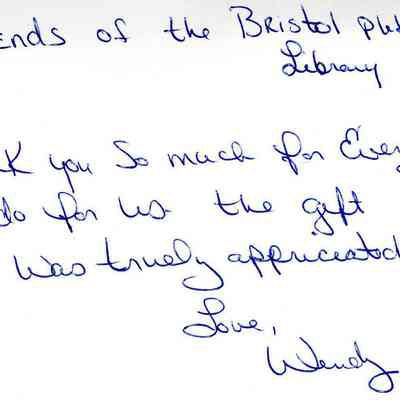 ends of the Bristol pub
Library
k you so much for Every
do for us the gift
was truely appriceatd
Love,
Wendy